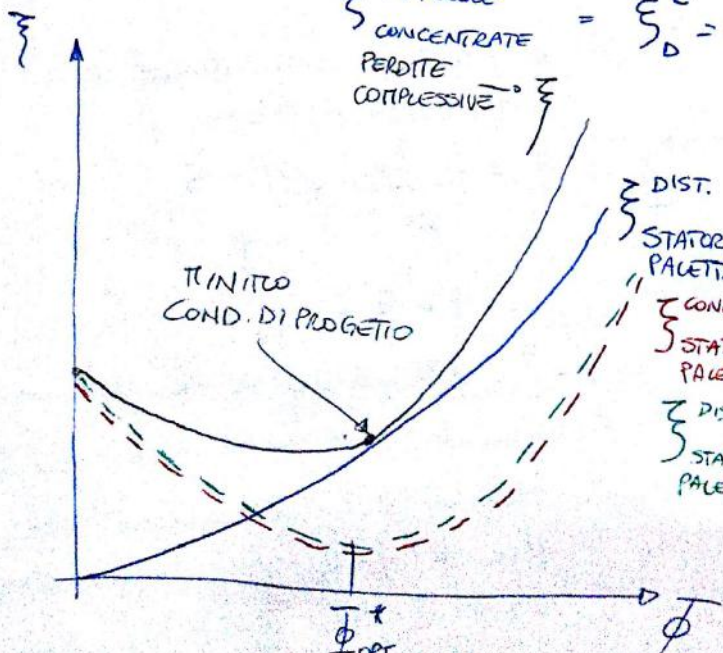 ξ
CONCENTRATE = ξ_D =
PERDITE
COMPLESSIVE → ξ
ξ DIST.
STATOR
PALETT
MINIMO
COND. DI PROGETTO
ξ CON
STAT
PALE
ξ DIS
STA
PALE
φ*
OPT
φ